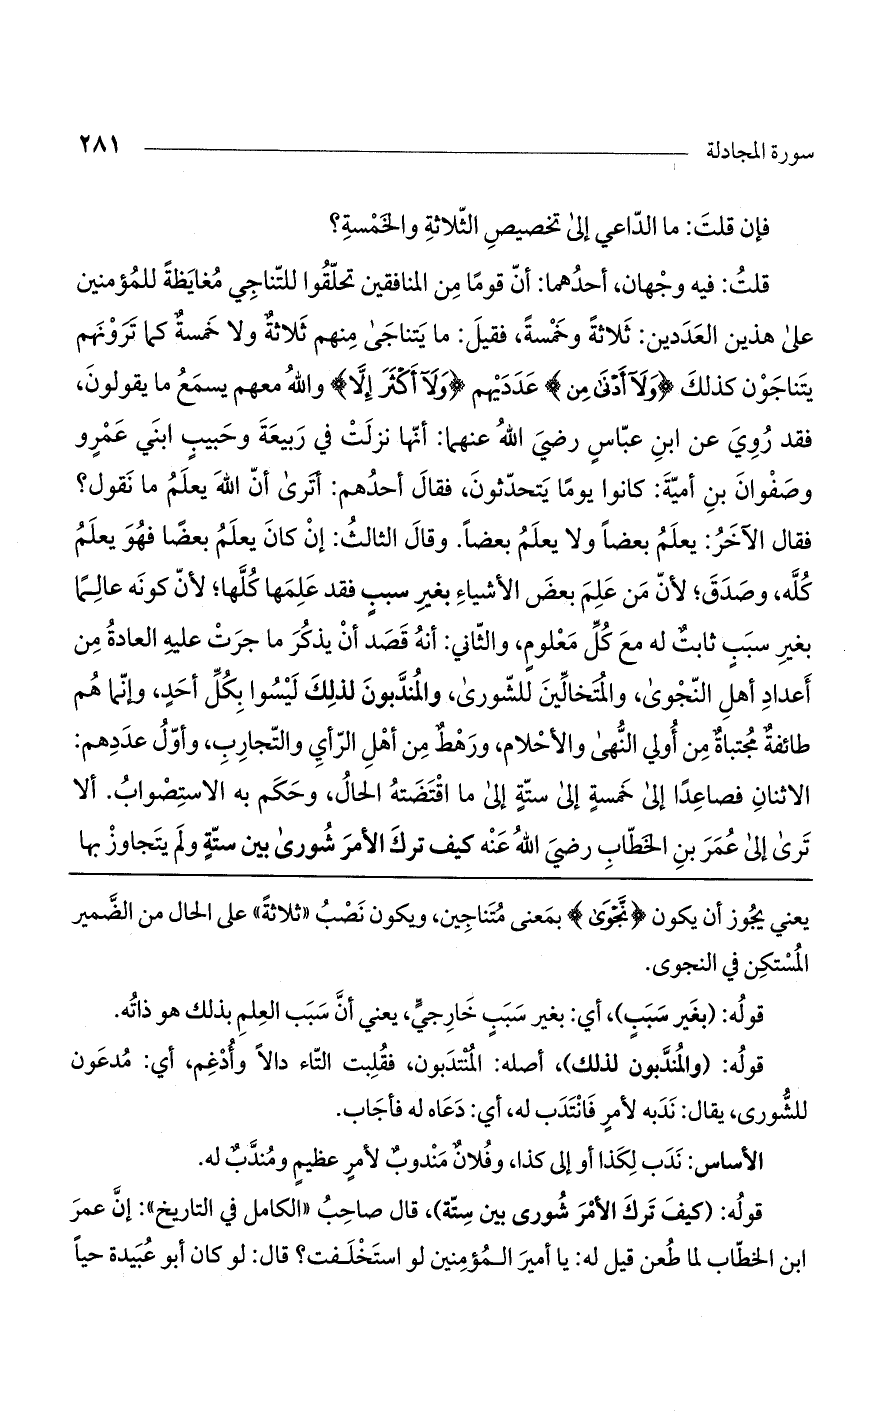 سورة المجادلة ٢٨١
فإن قلتَ: ما الدّاعي إلىٰ تخصيصِ الثّلاثةِ والخَمْسةِ؟
قلتُ: فيه وجْهان، أحدُهما: أنّ قومًا مِن المنافقين تحلّقُوا للتّناجِي مُغايَظةً للمُؤمنين
علىٰ هذين العَدَدين: ثَلاثةً وخَمْسةً، فقيلَ: ما يَتناجَىٰ مِنهم ثَلاثةٌ ولا خَمسةٌ كما تَرَوْنَهم
يتَناجَوْن كذلكَ ﴿وَلَآ أَدْنَىٰ مِن﴾ عَدَدَيْهم ﴿وَلَآ أَكْثَرَ إِلَّا﴾ واللهُ معهم يسمَعُ ما يقولونَ،
فقد رُوِيَ عن ابنِ عبّاسٍ رضيَ اللهُ عنهما: أنّها نزلَتْ في رَبيعَةَ وحَبيبٍ ابنَي عَمْرٍو
وصَفْوانَ بنِ أميّةَ: كانوا يومًا يَتحدّثونَ، فقالَ أحدُهم: أتَرىٰ أنّ اللهَ يعلَمُ ما نَقول؟
فقال الآخَرُ: يعلَمُ بعضاً ولا يعلَمُ بعضاً. وقالَ الثالثُ: إنْ كانَ يعلَمُ بعضًا فهُوَ يعلَمُ
كُلَّه، وصَدَقَ؛ لأنّ مَن عَلِمَ بعضَ الأشياءِ بغيرِ سببٍ فقد عَلِمَها كُلَّها؛ لأنّ كونَه عالِمًا
بغيرِ سبَبٍ ثابتٌ له معَ كُلِّ مَعْلومٍ، والثّاني: أنهُ قَصَد أنْ يذكُرَ ما جرَتْ عليهِ العادةُ مِن
أعدادِ أهلِ النّجْوىٰ، والمُتَخالِّينَ للشّورىٰ، والمُندَّبونَ لذلِكَ لَيْسُوا بِكُلِّ أحَدٍ، وإنّما هُم
طائفةٌ مُجتباةٌ مِن أُولي النُّهىٰ والأحْلام، ورَهْطٌ مِن أهْلِ الرّأيِ والتّجاربِ، وأوّلُ عدَدِهم:
الاثنانِ فصاعِدًا إلىٰ خَمسةٍ إلىٰ ستّةٍ إلىٰ ما اقْتَضَتهُ الحالُ، وحَكَم به الاستِصْوابُ. ألا
تَرىٰ إلىٰ عُمَرَ بنِ الخَطّابِ رضيَ اللهُ عَنْه كيف تركَ الأمرَ شُورىٰ بين ستّةٍ ولَم يتَجاوزْ بها
يعني يجُوز أن يكون ﴿نَّجْوَىٰ﴾ بمَعنى مُتَناجين، ويكون نَصْبُ «ثلاثةً» على الحال من الضَّمير
المُسْتكِن في النجوى.
قولُه: (بغَير سَبَبٍ)، أي: بغير سَبَبٍ خَارِجيٍّ، يعني أنَّ سَبَب العِلمِ بذلك هو ذاتُه.
قولُه: (والمُندَّبون لذلك)، أصله: المُنْتَدَبون، فقُلِبت التّاء دالاً وأُدْغِم، أي: مُدعَون
للشُّورى، يقال: نَدَبه لأمرٍ فَانْتَدَب له، أي: دَعَاه له فأجَاب.
الأساس: نَدَب لِكَذا أو إلى كذا، وفُلانٌ مَنْدوبٌ لأمرٍ عظيمٍ ومُندَّبٌ له.
قولُه: (كيفَ تَركَ الأمْرَ شُورى بين سِتّة)، قال صاحِبُ «الكامل في التاريخ»: إنَّ عمرَ
ابن الخطّاب لما طُعن قيل له: يا أميرَ المُؤمنين لو استَخْلَفت؟ قال: لو كان أبو عُبَيدة حياً